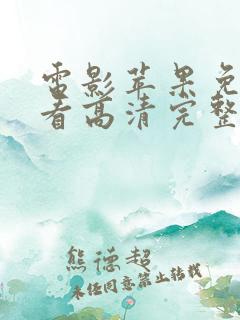 雷影苹果免
看高清完整
熊德超
未经同意禁止转载